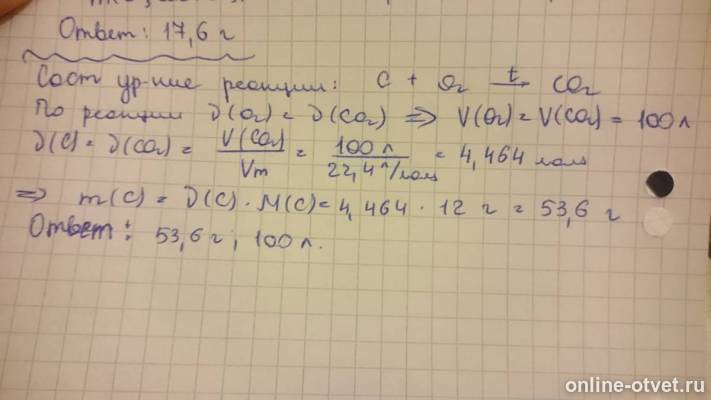 Ответ: 17,6 г
Сост ур-ние реакции: C + O₂ t→ CO₂
По реакции ν(O₂) = ν(CO₂) ⇒ V(O₂) = V(CO₂) = 100 л
ν(C) = ν(CO₂) = V(CO₂)/Vm = 100 л/22,4 л/моль = 4,464 моль
⇒ m(C) = ν(C) · M(C) = 4,464 · 12 г = 53,6 г
Ответ: 53,6 г; 100 л.
online-otvet.ru